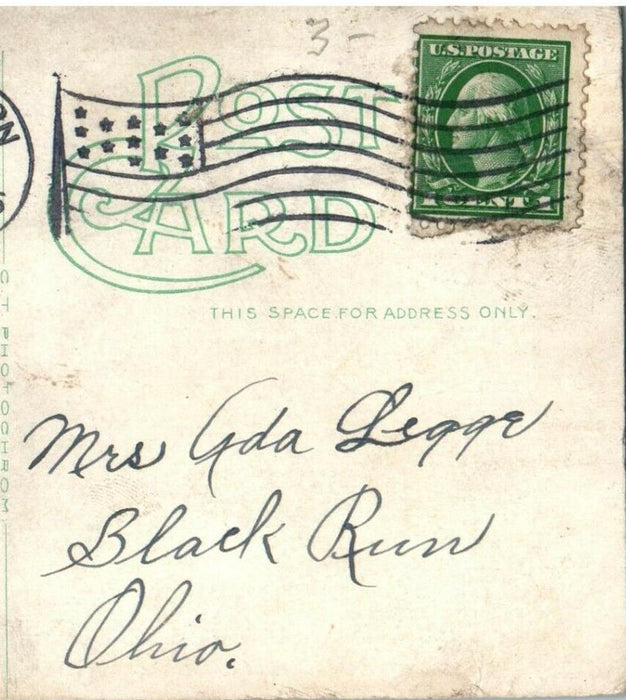 3-
U.S. POSTAGE
1 CENT 1
POST
CARD
THIS SPACE FOR ADDRESS ONLY.
C T PHOTOCHROM
Mrs Ada Legge
Black Run
Ohio.